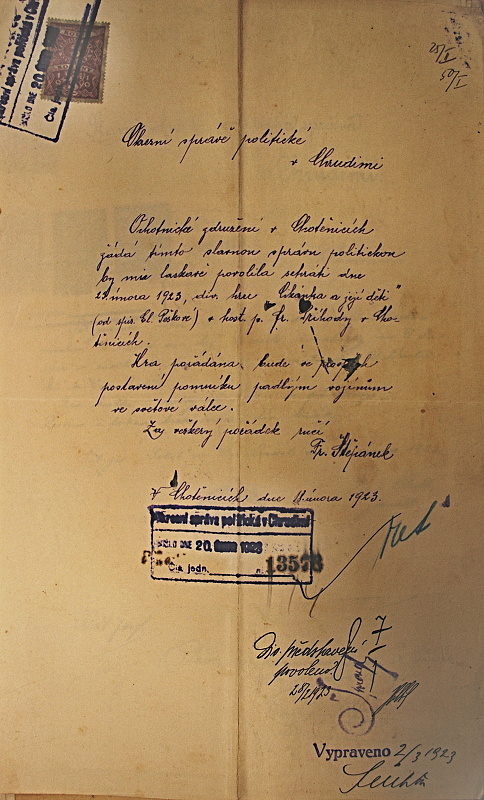 Okresní správa politická v Chrudimi
DOŠLO DNE 20. ÚNOR 1923
Čís. jedn.
25/I
50/I
Okresní správě politické
v Chrudimi
Ochotnické združení v Chotěnicích
žádá tímto slavnou správu politickou
by mu laskavě povolila sehrati dne
25. února 1923, div. hru "Cikánka a její děti"
(od spis. El. Peškové) v host. p. Fr. Příhody v Cho-
těnicích.
Hra pořádána bude ve prospěch
postavení pomníku padlým vojínům
ve světové válce.
Za veškerý pořádek ručí
Fr. Štěpánek
V Chotěnicích dne 18. února 1923.
Okresní správa politická v Chrudimi
DOŠLO DNE 20. ÚNOR 1923
Čís. jedn. 13573
Div. představení
povoleno.
28/2 1923
Vypraveno 2/3 1923